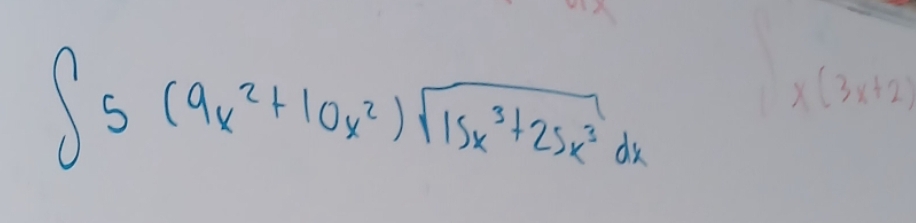 ∫ 5 (9x² + 10x²) √(15x³ + 25x³) dx
x(3x+2)